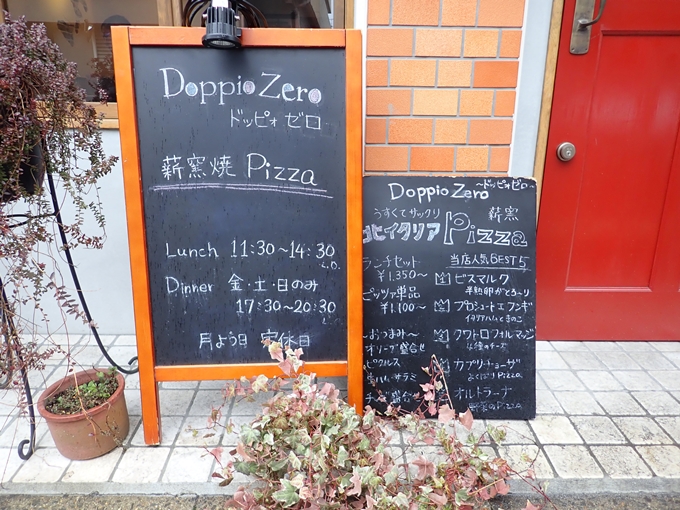 Doppio Zero
ドッピオ ゼロ
薪窯焼 Pizza
Lunch 11:30~14:30
L.O.
Dinner 金・土・日のみ
17:30~20:30
月よう日 定休日
Doppio Zero ~ドッピオゼロ~
うすくてサックリ 薪窯
北イタリア Pizza
ランチセット
¥1,350~
ピッツァ単品
¥1,100~
~おつまみ~
オリーブ盛合せ
ピクルス
生ハム・サラミ
当店人気BEST5
ビスマルク
半熟卵がとろ~り
プロシュートエフンギ
イタリアハムときのこ
クワトロフォルマッジ
4種のチーズ
カプリチョーザ
よくばりPizza
オルトラーナ
野菜のPizza